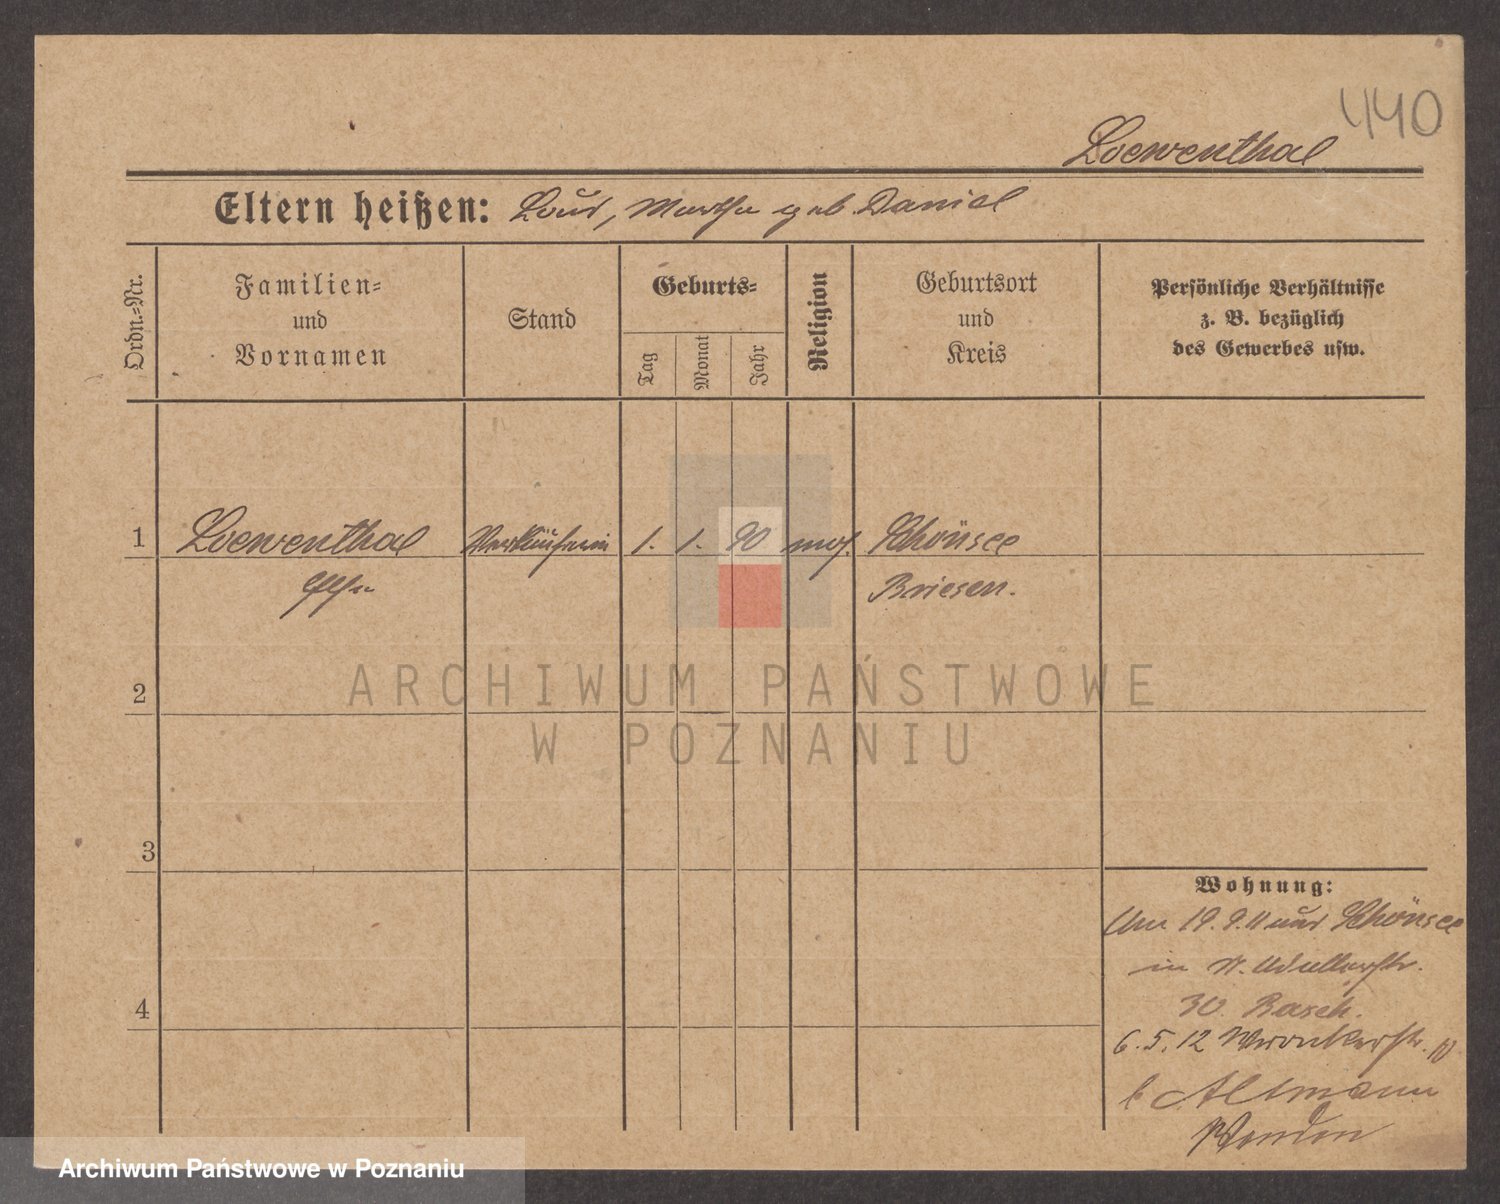 440
Loewenthal
Eltern heißen: Louis, Martha geb. Daniel
Ordn.-Nr.
Familien-
und
Vornamen
Stand
Geburts-
Tag
Monat
Jahr
Religion
Geburtsort
und
Kreis
Persönliche Verhältnisse
z. B. bezüglich
des Gewerbes usw.
1
Loewenthal
Verkäuferin
1. 1. 90
mos.
Schönsee
Briesen.
2
ARCHIWUM PAŃSTWOWE
W POZNANIU
3
4
Wohnung:
Am 19. 9. 11 aus Schönsee
in
30. Basch.
6. 5. 12 Wronkerstr. 10
b Altmann
Archiwum Państwowe w Poznaniu